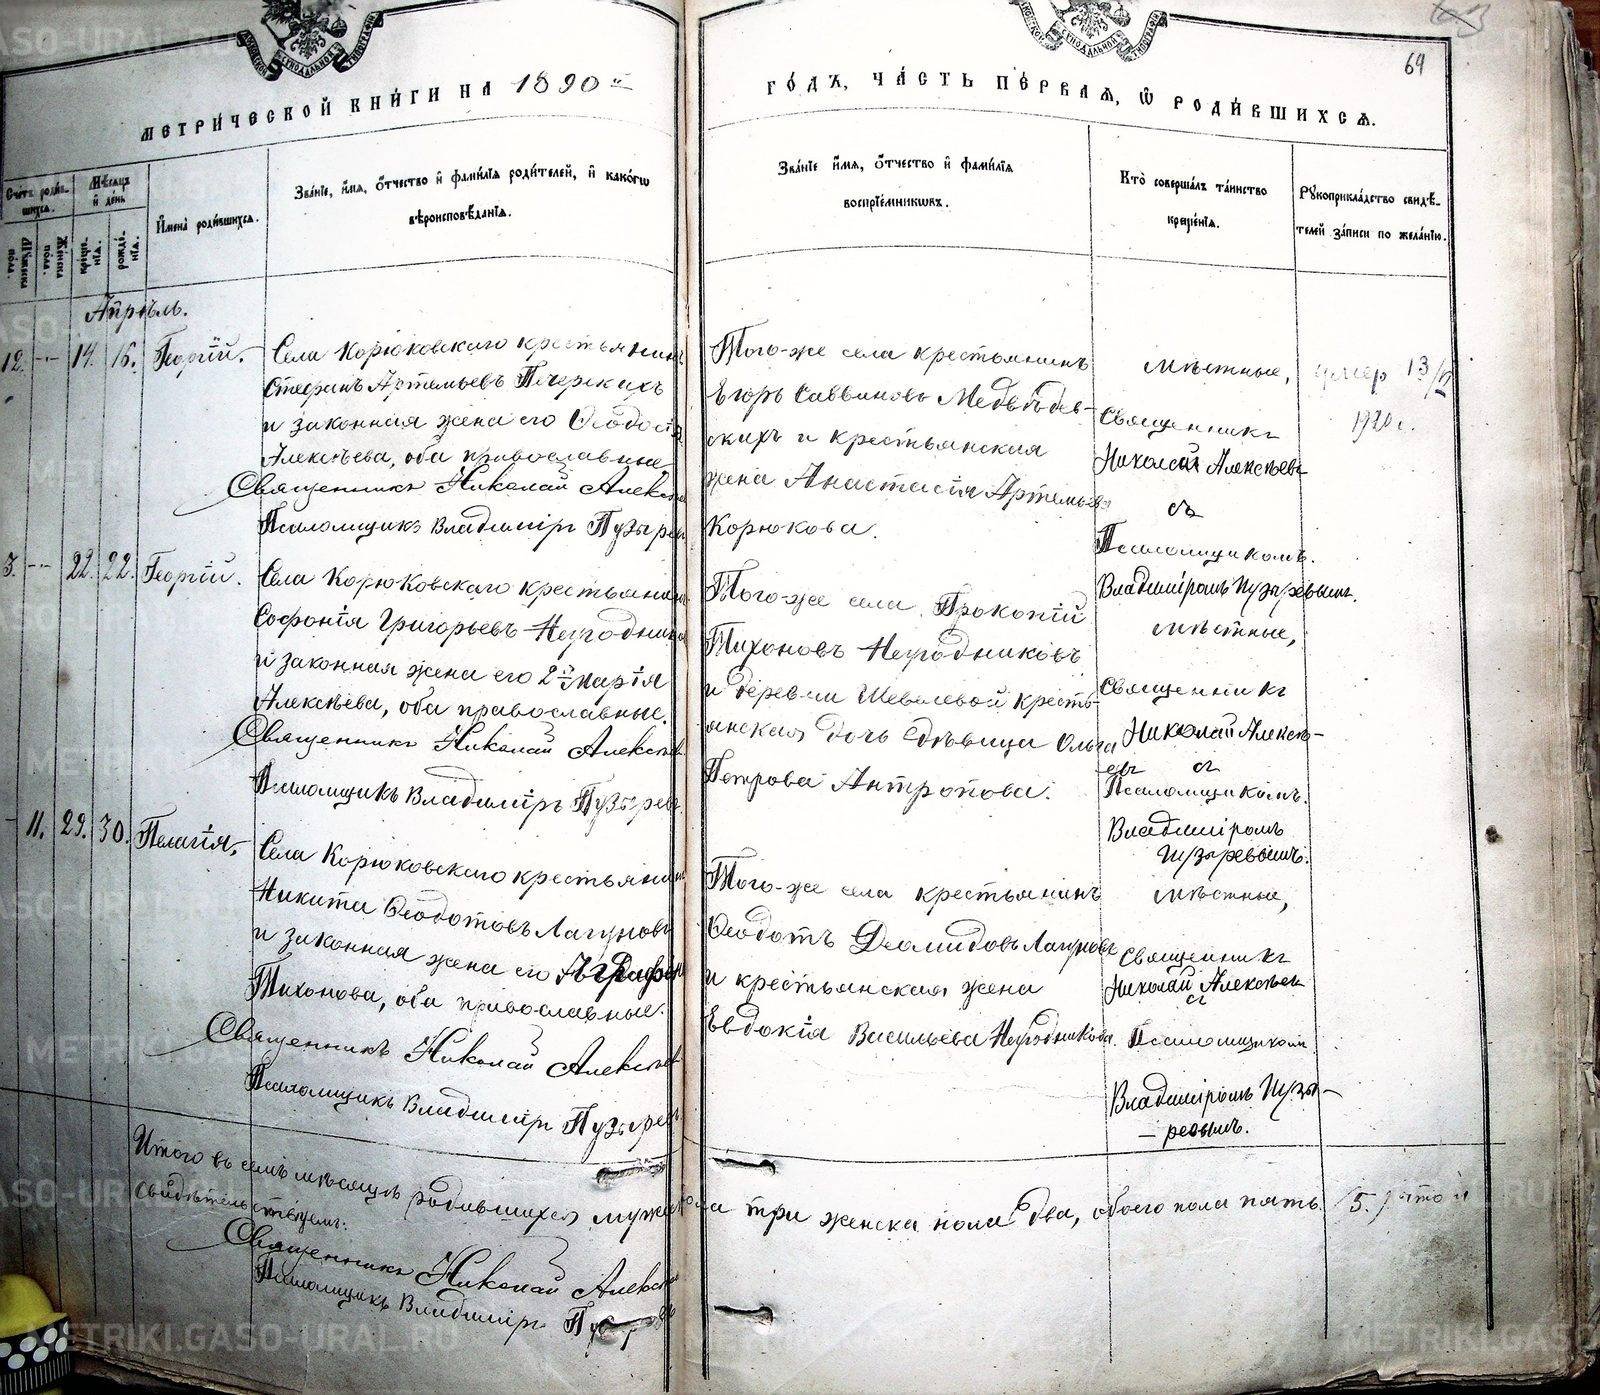 МЕТРИ́ЧЕСКОЙ КНИ́ГИ НА 1890 й
ГО́ДЪ, ЧА́СТЬ ПЕ́РВАѦ, Ѡ҆ РОДИ́ВШИХСѦ.
69
Счетъ роди́в-
шихся.
Мѣсяцъ
и҆ де́нь
Мꙋ́жеска
по́ла.
Же́нска
по́ла.
рожде́-
нїя.
креще́-
нїя.
И҆мена̀ роди́вшихся.
Зва́нїе, и҆́мя, ѻ҆́тчество и҆ фами́лїя роди́телей, и҆ како́гѡ
вѣроисповѣ́данїя.
Зва́нїе и҆́мя, ѻ҆́тчество и҆ фами́лїя
воспрїе́мникѡвъ.
Кто̀ соверша́лъ та́инство
креще́нїя.
Рꙋкоприкла́дство свидѣ́-
телей за́писи по жела́нїю.
Апрѣль.
12. -- 14. 16. Георгій.
Села Корюковскаго крестьянинъ
Стефанъ Артемьевъ Печерскихъ
и законная жена его Ѳеодосія
Алексѣева, оба православные
Священникъ Николай Алексѣев
Псаломщикъ Владиміръ Пузырев
Того-же села крестьянинъ
Егоръ Саввиновъ Медвѣдев-
скихъ и крестьянская
жена Анастасія Артемьева
Корюкова.
Мѣстные,
Священникъ
Николай Алексѣевъ
съ
Псаломщикомъ.
Владиміромъ Пузыревымъ.
умер 13/
3. -- 22. 22. Георгій.
Села Корюковскаго крестьянинъ
Софонія Григорьевъ Неугодников
и законная жена его 2я Марія
Алексѣева, оба православные.
Священникъ Николай Алексѣев
Псаломщикъ Владиміръ Пузырев
Того-же села Прокопій
Тихоновъ Неугодниковъ
и деревни Шевелевой кресть-
янская дочь дѣвица Ольга
Петрова Антропова.
мѣстные,
Священникъ
Николай Алексѣ-
евъ съ
Псаломщикомъ.
Владиміромъ
Пузыревымъ.
- 11. 29. 30. Пелагія,
Села Корюковскаго крестьянинъ
Никита Ѳеодотовъ Лагуновъ
и законная жена его Аграфена
Тихонова, оба православные.
Священникъ Николай Алексѣев
Псаломщикъ Владиміръ Пузырев
Того-же села крестьянинъ
Ѳеодотъ Діомидовъ Лагуновъ
и крестьянская жена
Евдокія Васильева Неугодникова.
мѣстные,
Священникъ
Николай Алексѣевъ
съ
Псаломщикомъ
Владиміромъ Пузы-
-ревымъ.
Итого въ семъ мѣсяцѣ родившихся мужеска пола три женска пола два, обоего пола пять. /5./ что и
свидѣтельствуемъ:
Священникъ Николай Алексѣев
Псаломщикъ Владиміръ
METRIKI.GASO-URAL.RU